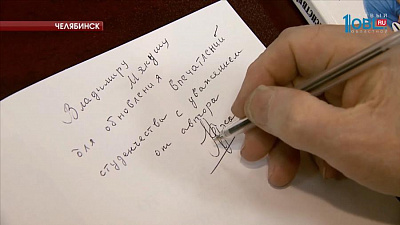 ЧЕЛЯБИНСК
1OBL.RU
Владимиру
Мякушу
для обновления впечатлений
студенчества с уважением
от автора